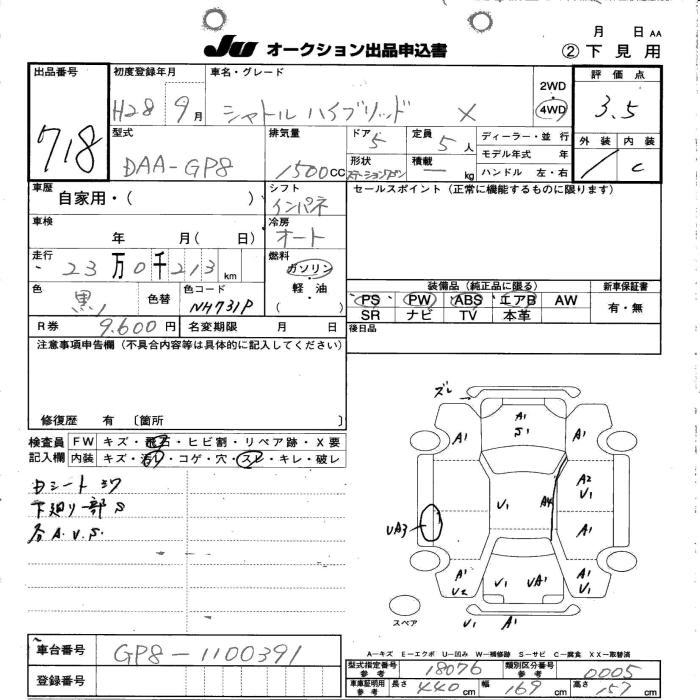 月 日 AA
JU オークション出品申込書
② 下見用
出品番号 718
初度登録年月 H28 9月
車名・グレード シャトル ハイブリッド X
2WD 4WD
評価点 3.5
外装 内装 C
型式 DAA-GP8
排気量 1500CC
ドア 5
定員 5人
形状 ステーションワゴン
積載 — kg
ディーラー・並行
モデル年式 年
ハンドル 左・右
車歴 自家用・( )
シフト インパネ
セールスポイント(正常に機能するものに限ります)
車検 年 月( 日)
冷房 オート
走行 23万0千213km
燃料 ガソリン 軽・油 ( )
色 黒 色替
色コード NH731P
装備品(純正品に限る)
新車保証書 有・無
PS PW ABS エアB AW
SR ナビ TV 本革
R券 9.600円 名変期限 月 日
後日品
注意事項申告欄(不具合内容等は具体的に記入してください)
修復歴 有 〔箇所 〕
検査員記入欄
FW キズ・飛石・ヒビ割・リペア跡・X要
内装 キズ・汚レ・コゲ・穴・スレ・キレ・破レ
下廻り一部S
各A.U.S.
ズレ
A1
S1
A1 A1
A2
U1
U1 A4
UA3
A1
A1
U2
U1 UA1
A1
U1
U1 A1
スペア
A—キズ E—エクボ U—凹み W—補修跡 S—サビ C—腐食 XX—取替済
車台番号 GP8-1100391
登録番号
型式指定番号 参考 18076 類別区分番号 参考 0005
車庫証明用 参考 長さ 440cm 幅 169cm 高さ 157cm